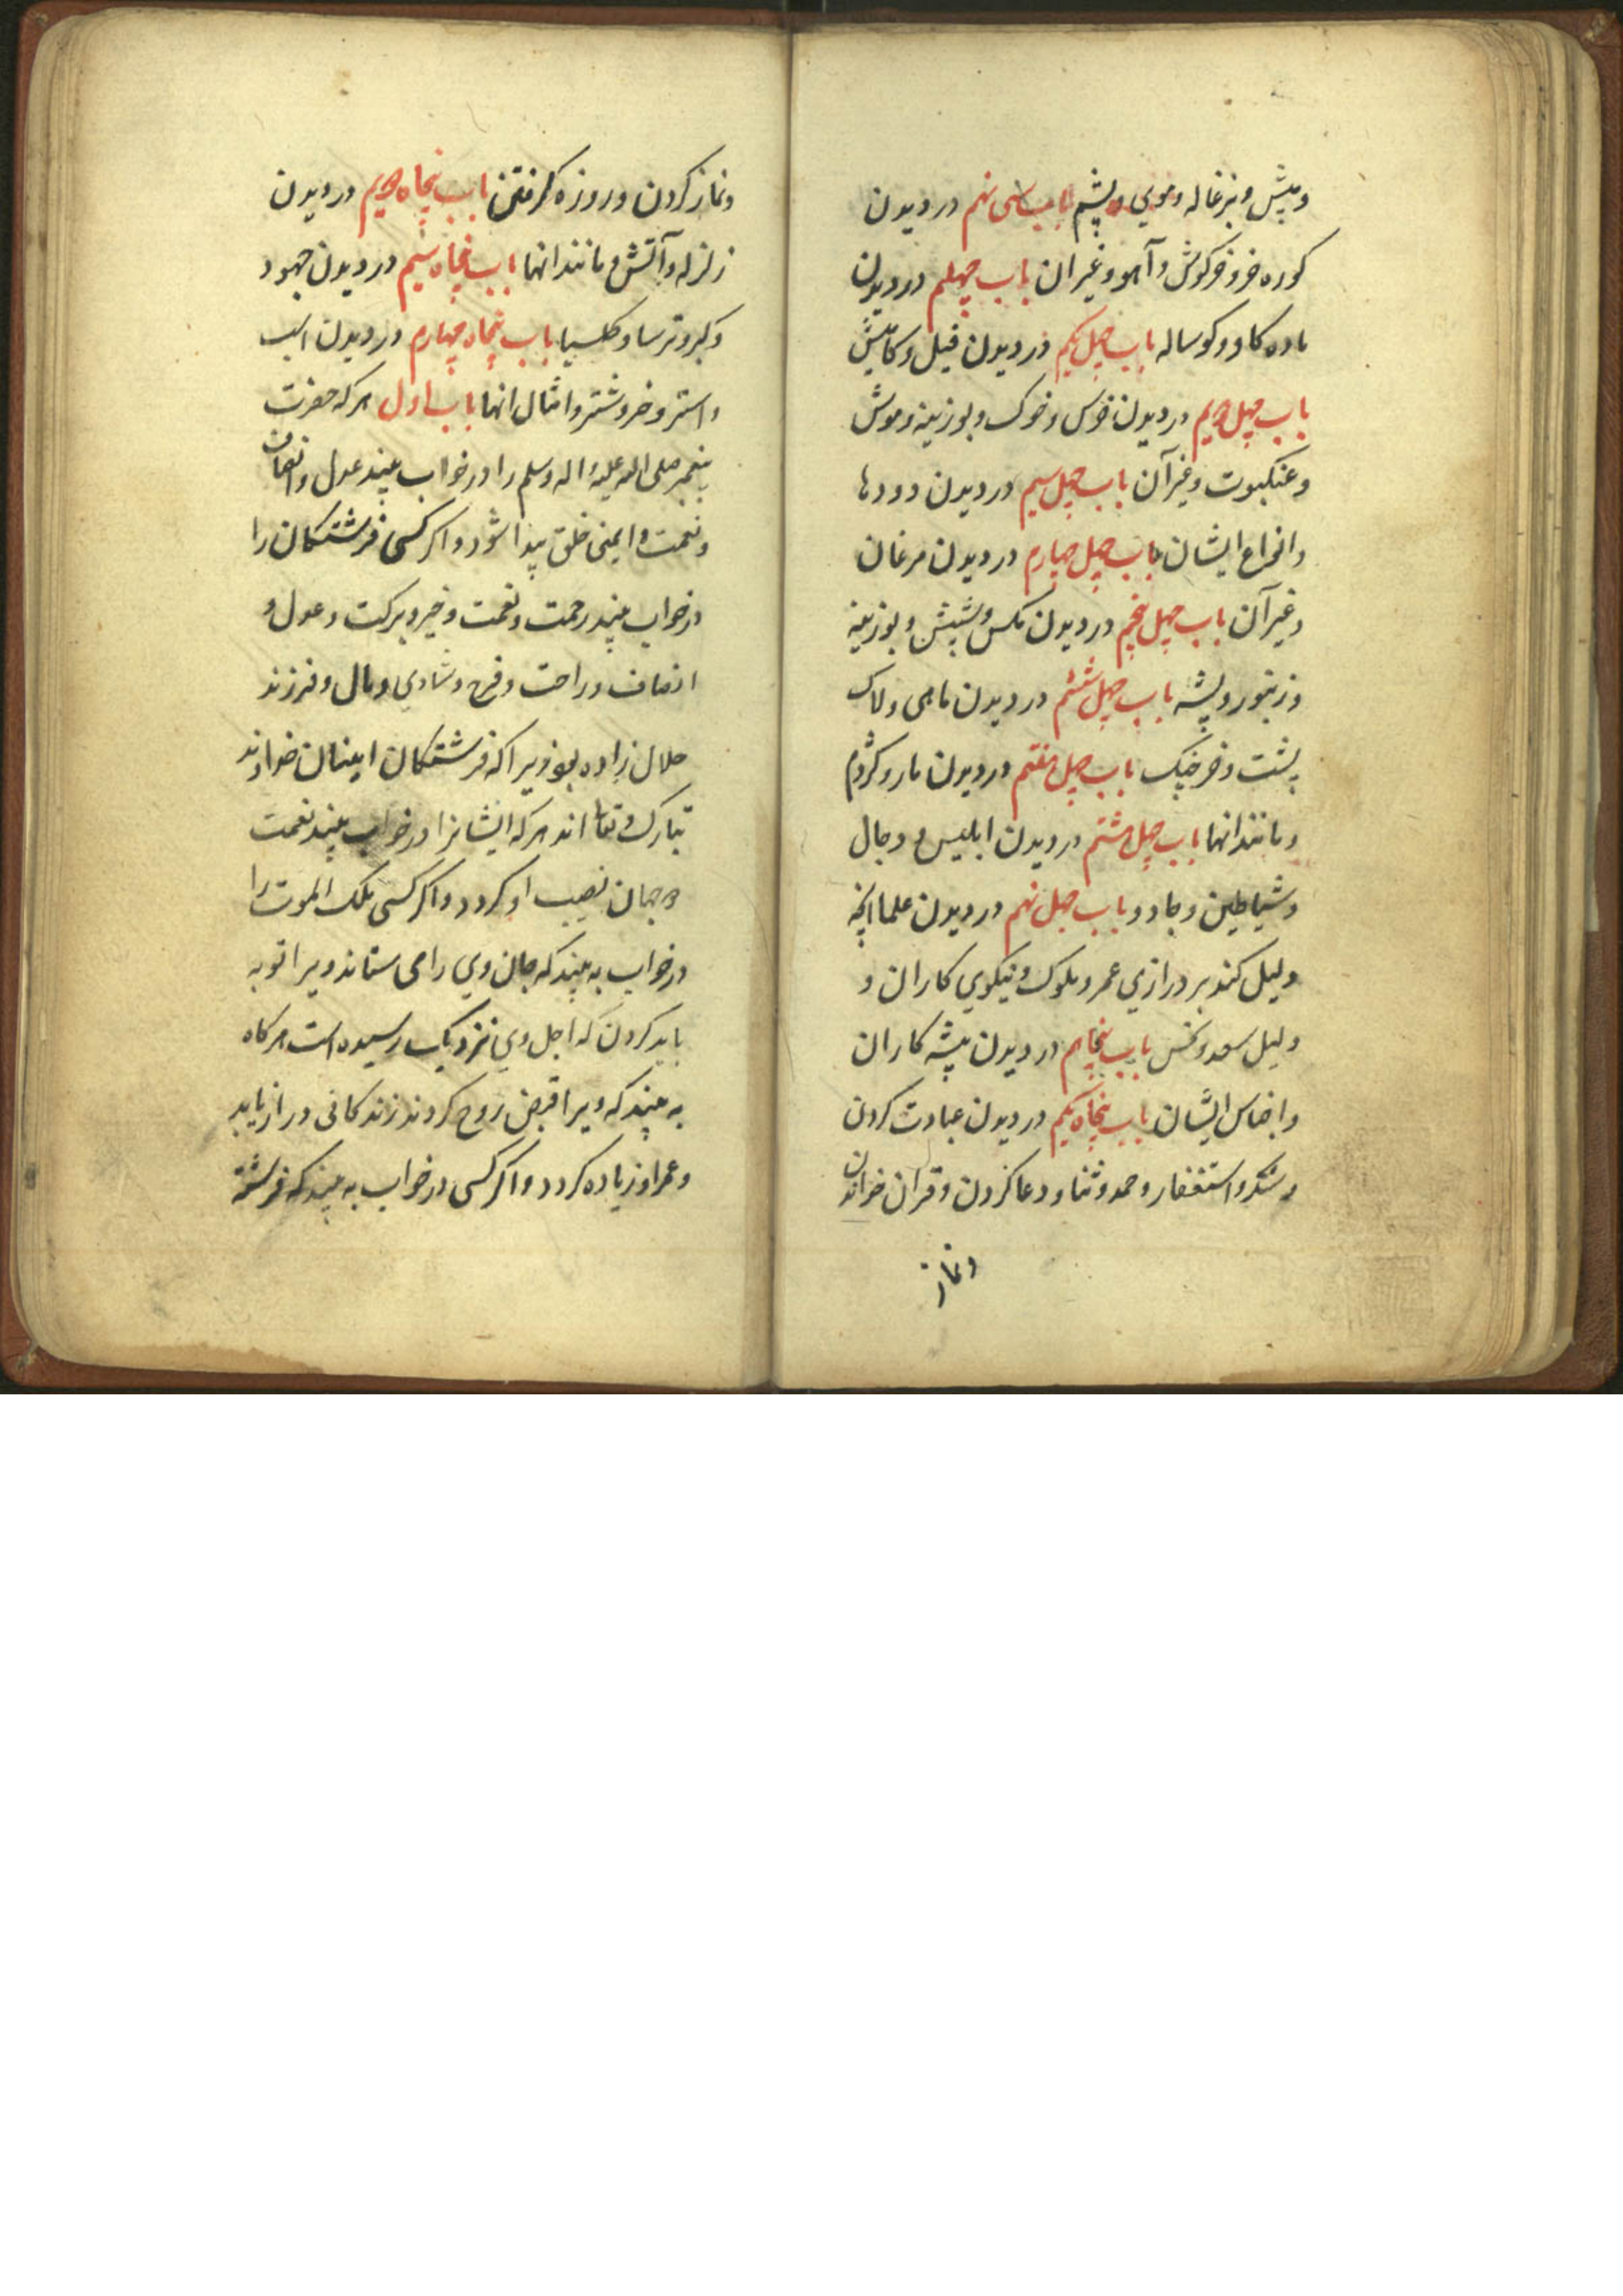 ومیش و بزغاله و موی و پشم باب سی نهم در دیدن
کوره خر و خرکوش و آهو و غیر ان باب چهلم در دیدن
ماده کاو و کوساله باب چهل یکم در دیدن فیل و کامیش
باب چهل دویم در دیدن خرس و خوک و بوزینه و موش
و عنکبوت و غیر آن باب چهل سیم در دیدن دودها
وانواع ایشان باب چهل چهارم در دیدن مرغان
و غیر آن باب چهل پنجم در دیدن مکس و شپش و بوزینه
و زنبور و پشه باب چهل ششم در دیدن ماهی و لاک
پشت و خرچنک باب چهل هفتم در دیدن مار و کژدم
و مانند انها باب چهل هشتم در دیدن ابلیس و دجال
و شیاطین و جادو باب چهل نهم در دیدن علما انچه
دلیل کند بر درازی عمر و ملوک و نیکوی کاران و
دلیل سعد و نحس باب پنجاهم در دیدن پیشه کاران
و اجناس ایشان باب پنجاه یکم در دیدن عبادت کردن
و شکر و استغفار و حمد و ثنا و دعا کردن و قران خواندن
و نماز
و نماز کردن و روزه کرفتن باب پنجاه دویم در دیدن
زلزله و آتش و مانند انها باب پنجاه سیم در دیدن جهود
و کبر و ترسا و کلیسیا باب پنجاه چهارم در دیدن اسب
و استر و خر و شتر و امثال انها باب اول هر که حضرت
پیغمبر صلی الله علیه و اله و سلم را در خواب بیند عدل و انصاف
و نعمت و ایمنی خلق پیدا شود و اکر کسی فرشتکان را
در خواب بیند رحمت و نعمت و خیر و برکت و عدل و
انصاف و راحت و فرح و شادی و مال و فرزند
حلال زاده بود ویرا که فرشتکان امینان خداوند
تبارک و تعا اند هر که ایشانرا در خواب بیند نعمت
دو جهان نصیب او کردد و اکر کسی ملک الموت را
در خواب به بیند که جان وی را می ستاند ویرا توبه
باید کردن که اجل وی نزدیک رسیده است هر کاه
به بیند که ویرا قبض روح کردند زندکانی دراز یابد
و عمر او زیاده کردد و اکر کسی در خواب به بیند که فرشته